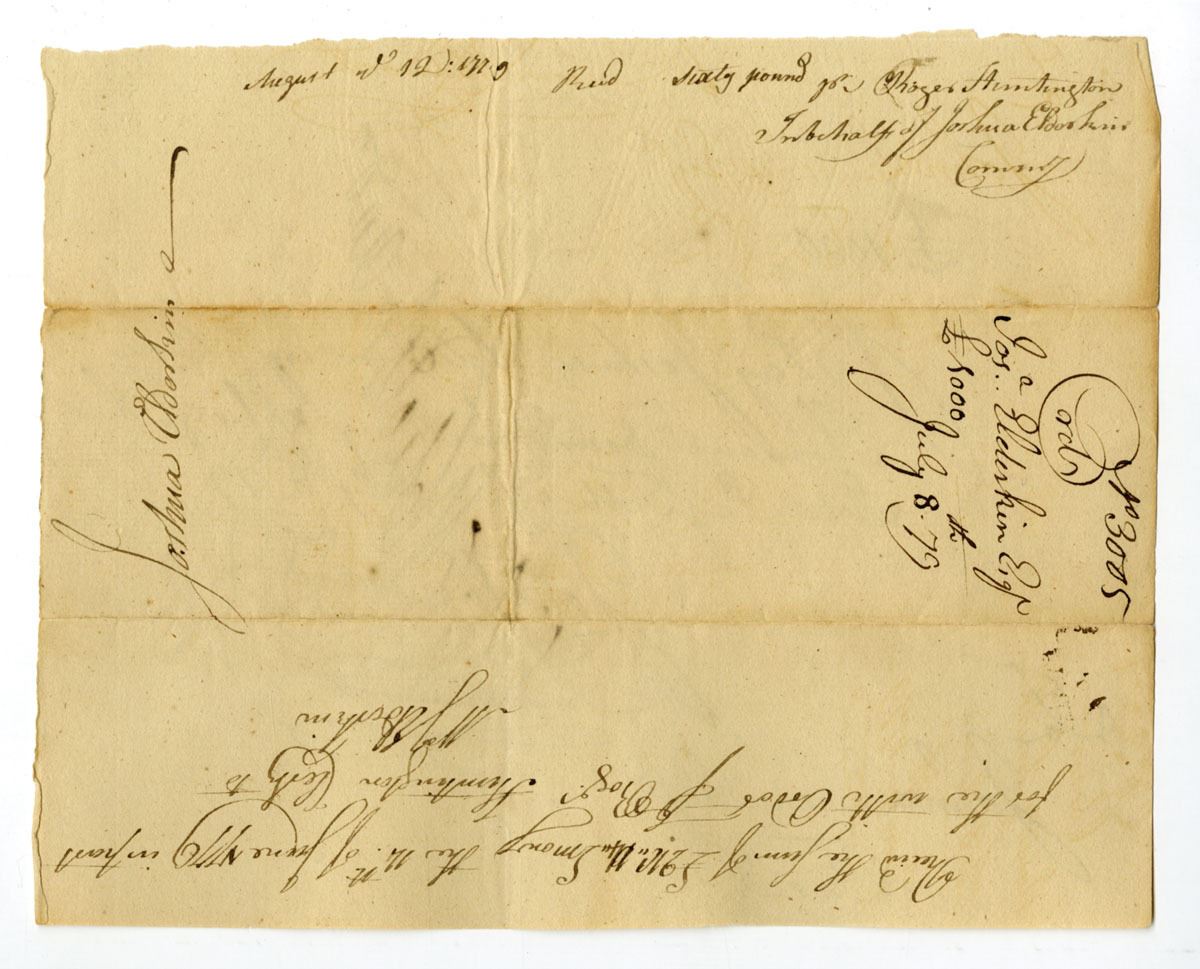 August ye 12D: 1779 Recd sixty pound pr Roger Huntington
In behalf of Joshua Elderkin
Comssy
Joshua Elderkin
No 3005
ord
Josa.. Elderkin Esqr
£1000
July 8th 79
Receivd the Sum of money the 11th of June 1779 in part
for the within Order Rogr Huntington Clerk to
Mr J Elderkin